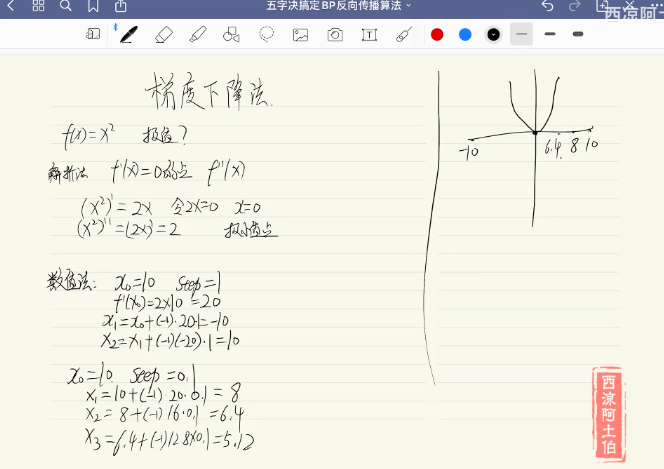 五字决搞定BP反向传播算法
西凉阿土
梯度下降法.
f(x)=x² 极值?
解析法 f'(x)=0的点 f''(x)
(x²)'=2x 令2x=0 x=0
(x²)''=(2x)'=2 极小值点
数值法: x₀=10 step=1
f'(x₀)=2x10=20
x₁=x₀+(-1)·20·1=-10
x₂=x₁+(-1)(-20)·1=10
x₀=10 step=0.1
x₁=10+(-1)20·0.1=8
x₂=8+(-1)16·0.1=6.4
x₃=6.4+(-1)12.8x0.1=5.12
-10 6.4. 8 10
西凉阿土伯